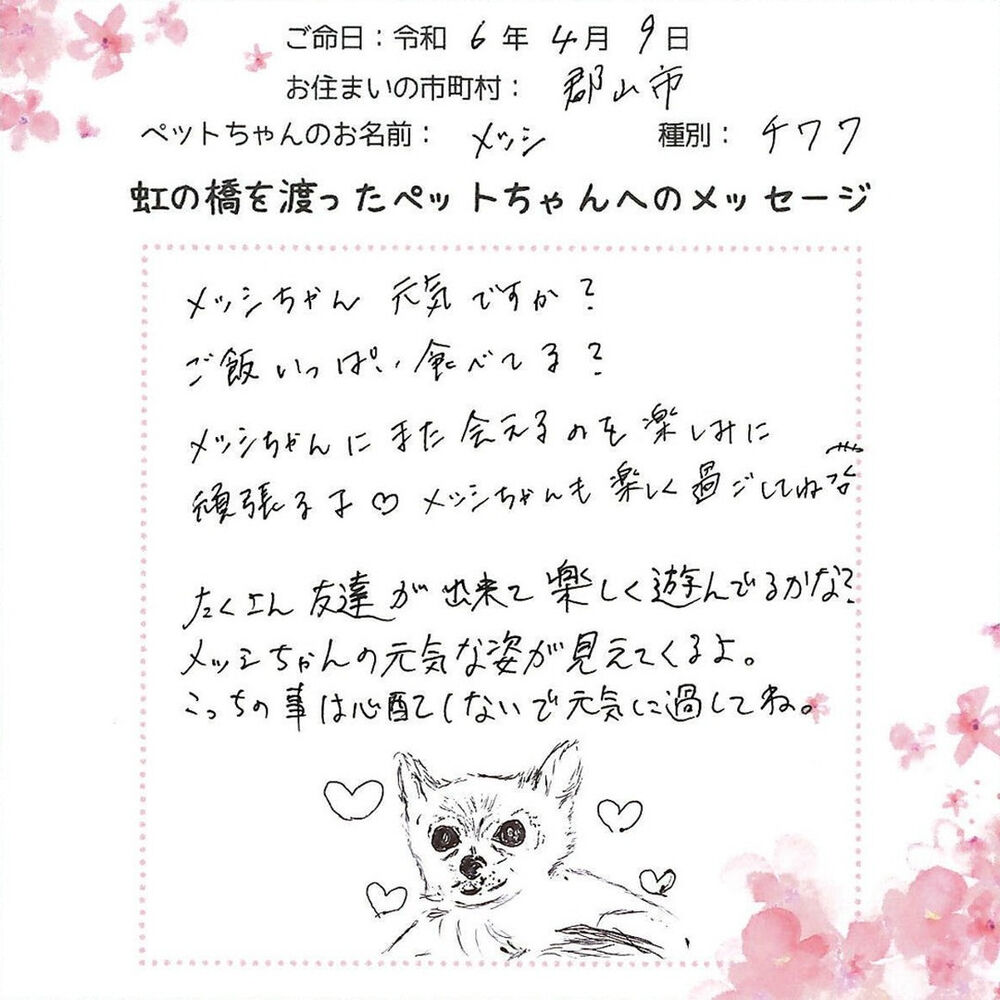 ご命日：令和 6 年 4 月 9 日
お住まいの市町村： 郡山市
ペットちゃんのお名前： メッシ 種別： チワワ
虹の橋を渡ったペットちゃんへのメッセージ
メッシちゃん 元気ですか？
ご飯いっぱい食べてる？
メッシちゃんにまた会えるのを楽しみに
頑張るよ♡ メッシちゃんも楽しく過ごしてね
たくさん友達が出来て楽しく遊んでるかな？
メッシちゃんの元気な姿が見えてくるよ。
こっちの事は心配しないで元気に過してね。